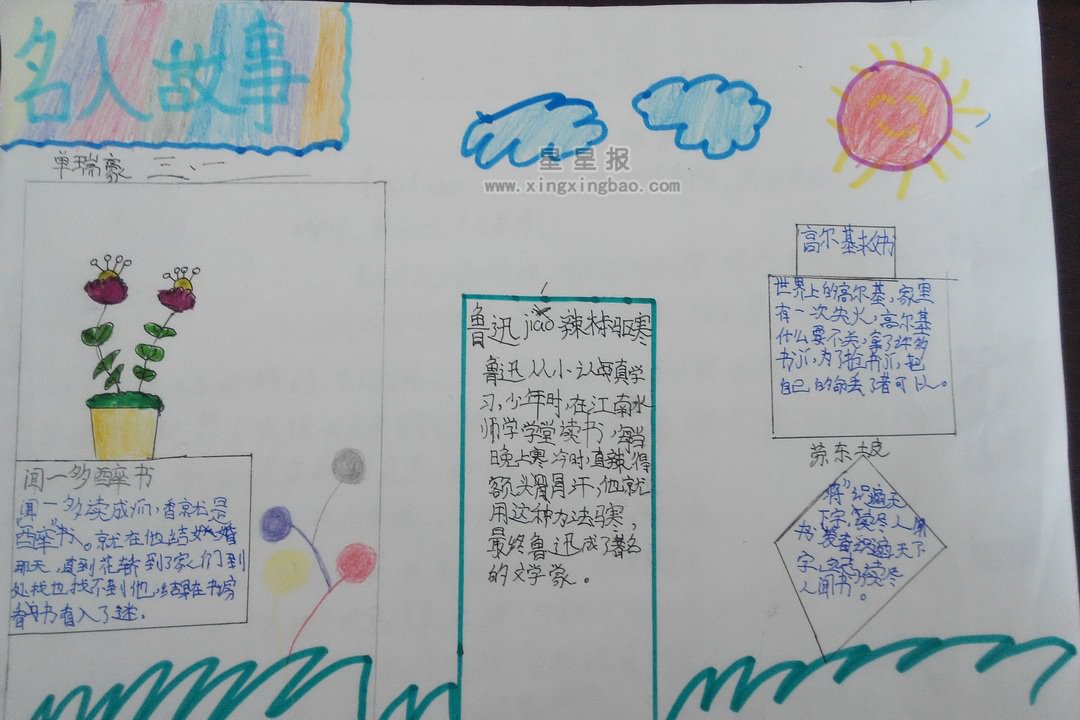 名人故事
单瑞豪 三、一
星星报
www.xingxingbao.com
闻一多醉书
闻一多读成瘾,看就是
"醉"书。就在他结婚
那天,直到花轿到了家人们到
处找也找不到他,结果在书房
看书有入了迷.
鲁迅jiao辣椒驱寒
鲁迅从小认真学
习,少年时,在江南水
师学学堂读书,每当
晚上寒冷时,直辣得
额头冒汗,他就
用这种方法驱寒,
最终鲁迅成了著名
的文学家。
高尔基救书
世界上的高尔基,家里
有一次失火,高尔基
什么要不关,拿了许多
书爪,为了抢书爪,把
自己的命丢了者可以。
苏东坡
将"识遍天
下字,读尽人间
为 发着识遍天下
字,立志读尽
人间书。